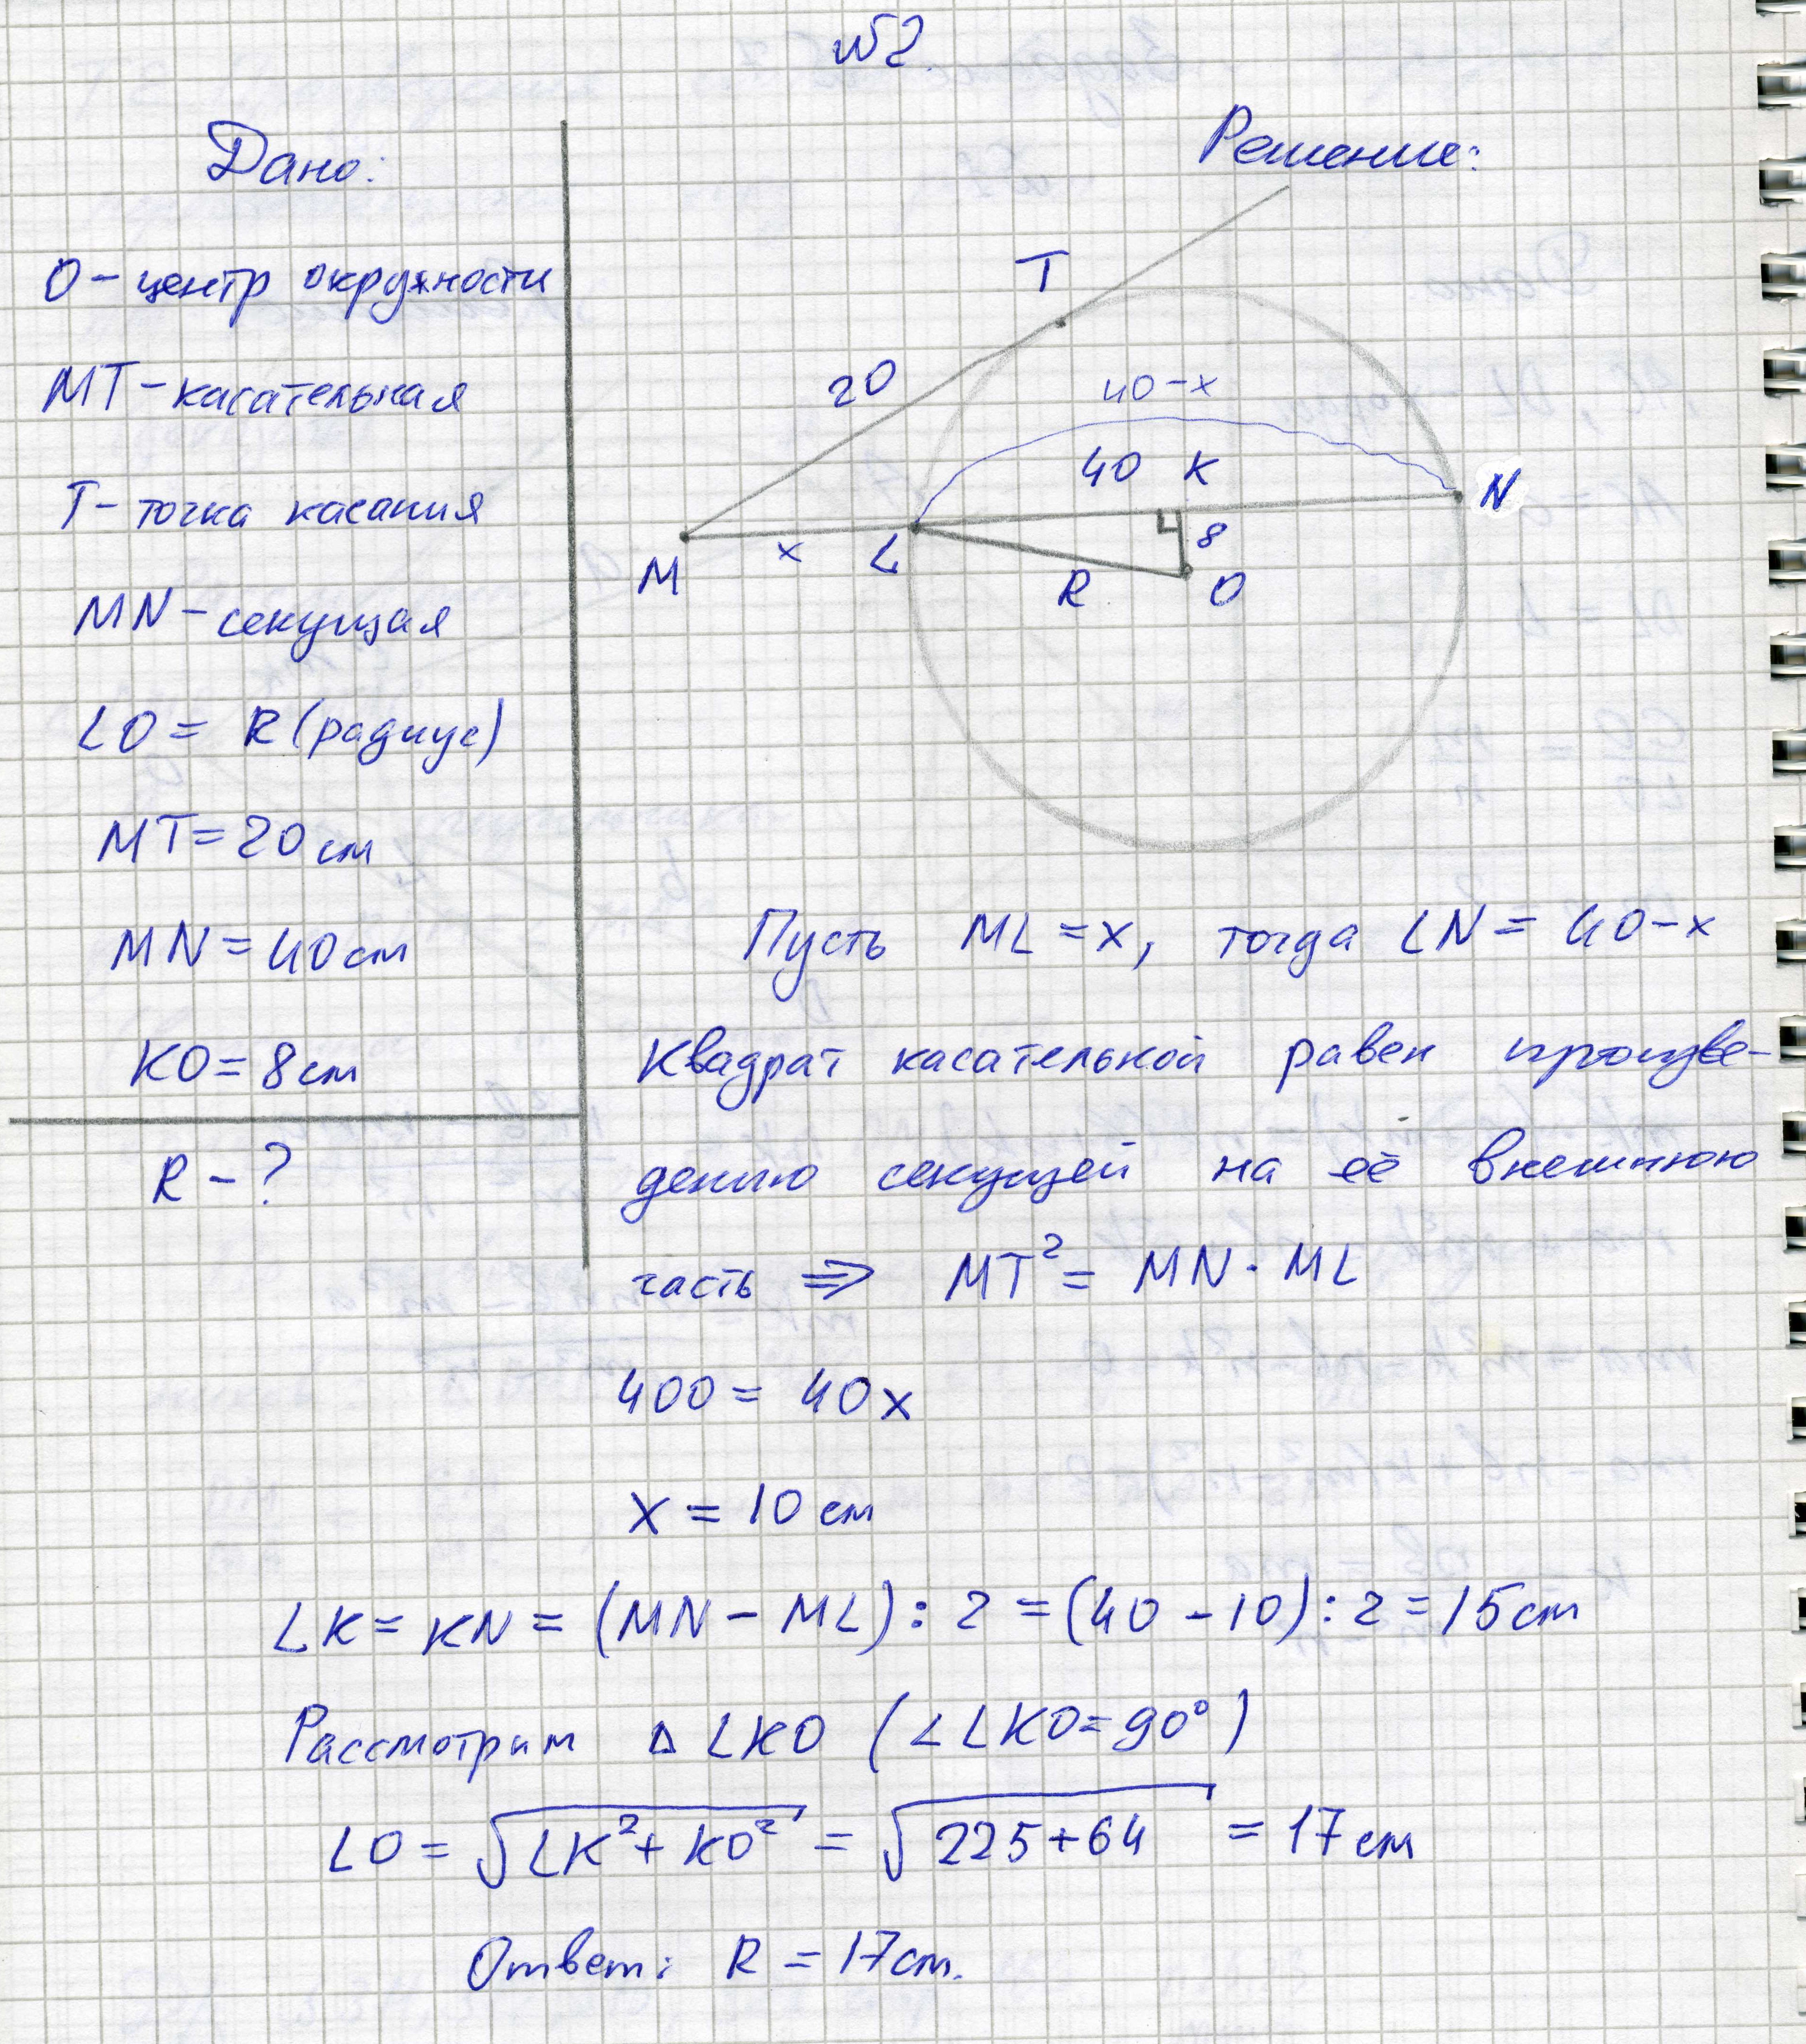 №2.
Дано:
О - центр окружности
MT - касательная
T - точка касания
MN - секущая
LO = R (радиус)
MT = 20 см
MN = 40 см
KO = 8 см
R - ?
Решение:
T
20
40-x
40 K
N
M
x
L
8
R
O
Пусть ML = x, тогда LN = 40-x
Квадрат касательной равен произве-
дению секущей на её внешнюю
часть ⇒ MT² = MN · ML
400 = 40x
x = 10 см
LK = KN = (MN - ML) : 2 = (40 - 10) : 2 = 15 см
Рассмотрим Δ LKO (∠LKO = 90°)
LO = √LK² + KO² = √225 + 64 = 17 см
Ответ: R = 17 см.